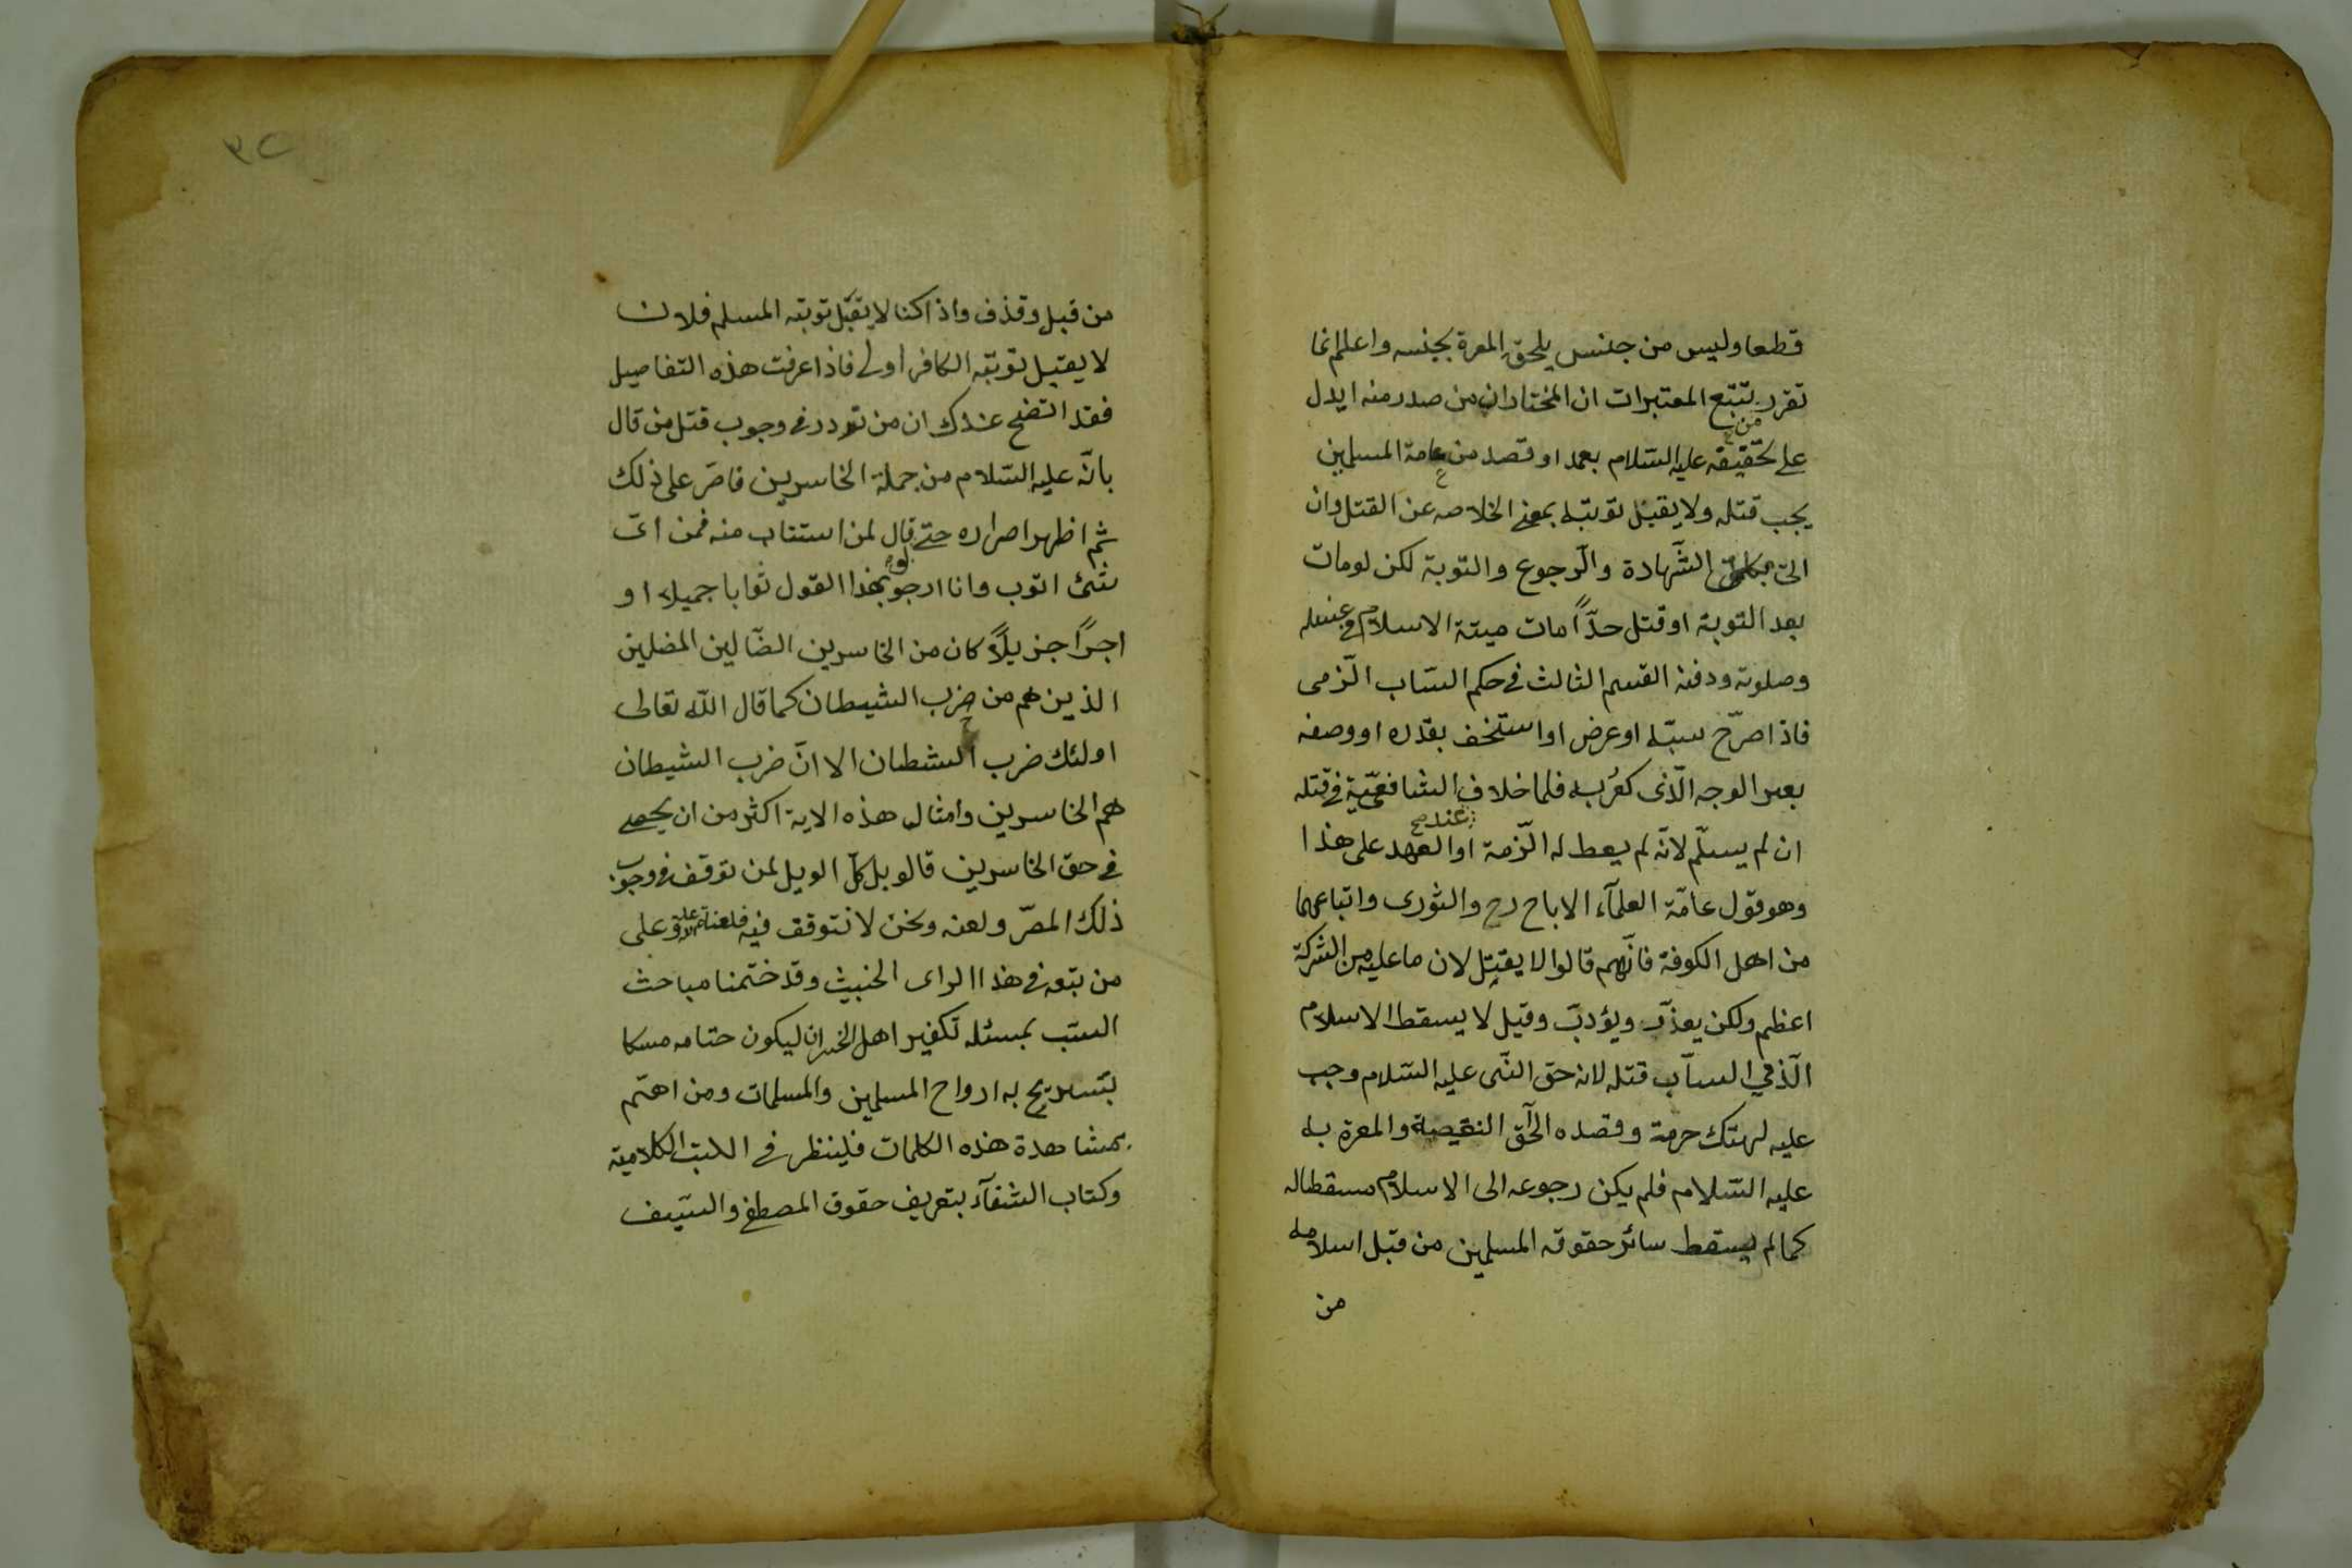 قطعا وليس من جنس يلحق المعرة بجنسه واعلم انما
تقرر بتتبع المعتبرات ان المختار ان من صدر منه ايدل
على تحقيقه عليه السّلام بعمد او قصد من عامة المسلمين
يجب قتله ولا يقبل توبته بمعنى الخلاصه عن القتل وان
اتى الشّهادة والرّجوع والتوبة لكن لومات
بعد التوبة او قتل حدّاً مات ميتة الاسلام في غسله
وصلوته ودفنه القسم الثالث في حكم السّاب الزّمى
فاذا صرّح سبّه او عرض او استخف بقدره او وصفه
بعىر الوجه الّذى كفر به فلما خلاف الشافعيّة في قتله
ان لم يسلّم لانّه لم يعط له الزّمة او العهد على هذا
عند صح
وهو قول عامّة العلمآء الا اباح رح والثورى واتباعهما
من اهل الكوفة فانّهم قالوا لا يقبل لان ما عليه من الشركة
اعظم ولكن يعذّب ويؤدبّ وقيل لا يسقط الاسلام
الّذمي السآب قتله لانه حق النّبى عليه السّلام وجب
عليه لهتك حرمة وقصده الحآق النقيصة والمعرة به
عليه السّلام فلم يكن رجوعه الى الاسلام مسقطاله
كما لم يسقط سائر حقوقه المسلمين من قبل اسلامه
من
٣٢
من قبل وقذف واذا كنا لا يقبّل توبته المسلم فلان
لا يقبل توبته الكافر اولى فاذا عرفت هذه التفاصيل
فقد اتضح عندك ان من تردد في وجوب قتل من قال
بانّه عليه السّلام من جملة الخاسرين فاصرّ على ذلك
ثم اظهر اصراره حتى قال لمن استتاب منه فمن اىّ
شئ اتوب وانا ارجو بهذا القول ثوابا جميلا او
اجرًا جزيلاً كان من الخاسرين الضّالين المضلين
الذين هم من حزب الشيطان كما قال الله تعالى
اولئك حزب الشطان الا انّ حزب الشيطان
هم الخاسرين وامثال هذه الاية اكثر من ان يحصى
في حق الخاسرين قالوبل كلّ الويل لمن توقف في وجوب
ذلك المصرّ ولعنه ونحن لا نتوقف فيه فلعنة الله عليه وعلى
من بتعه في هذا الراى الخبيث وقد ختمنا مباحث
السبّ بمسئله تكفير اهل الخسران ليكون ختامه مسكا
بتسريح به ارواح المسلمين والمسلمات ومن اهتم
بمشاهدة هذه الكلمات فلينظر في الكتب الكلامية
وكتاب الشفآء بتعريف حقوق المصطفى والسّيف